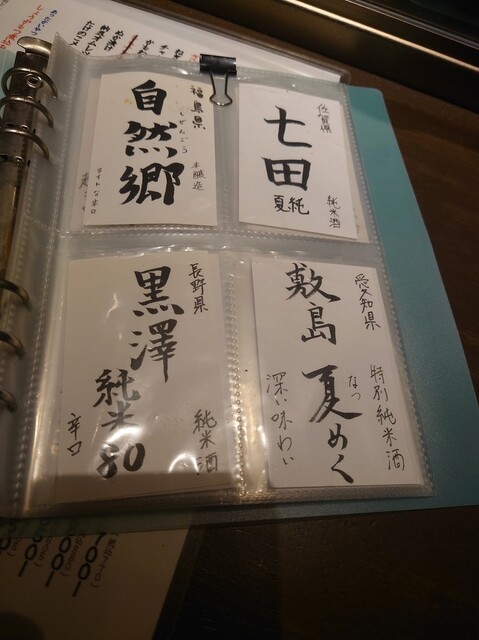 福島県
自然郷
しぜんごう
本醸造
ライトな辛口
佐賀県
七田
夏純
純米酒
長野県
黒澤
純米80
純米酒
辛口
愛知県
敷島
夏めく
なつ
特別純米酒
深い味わい